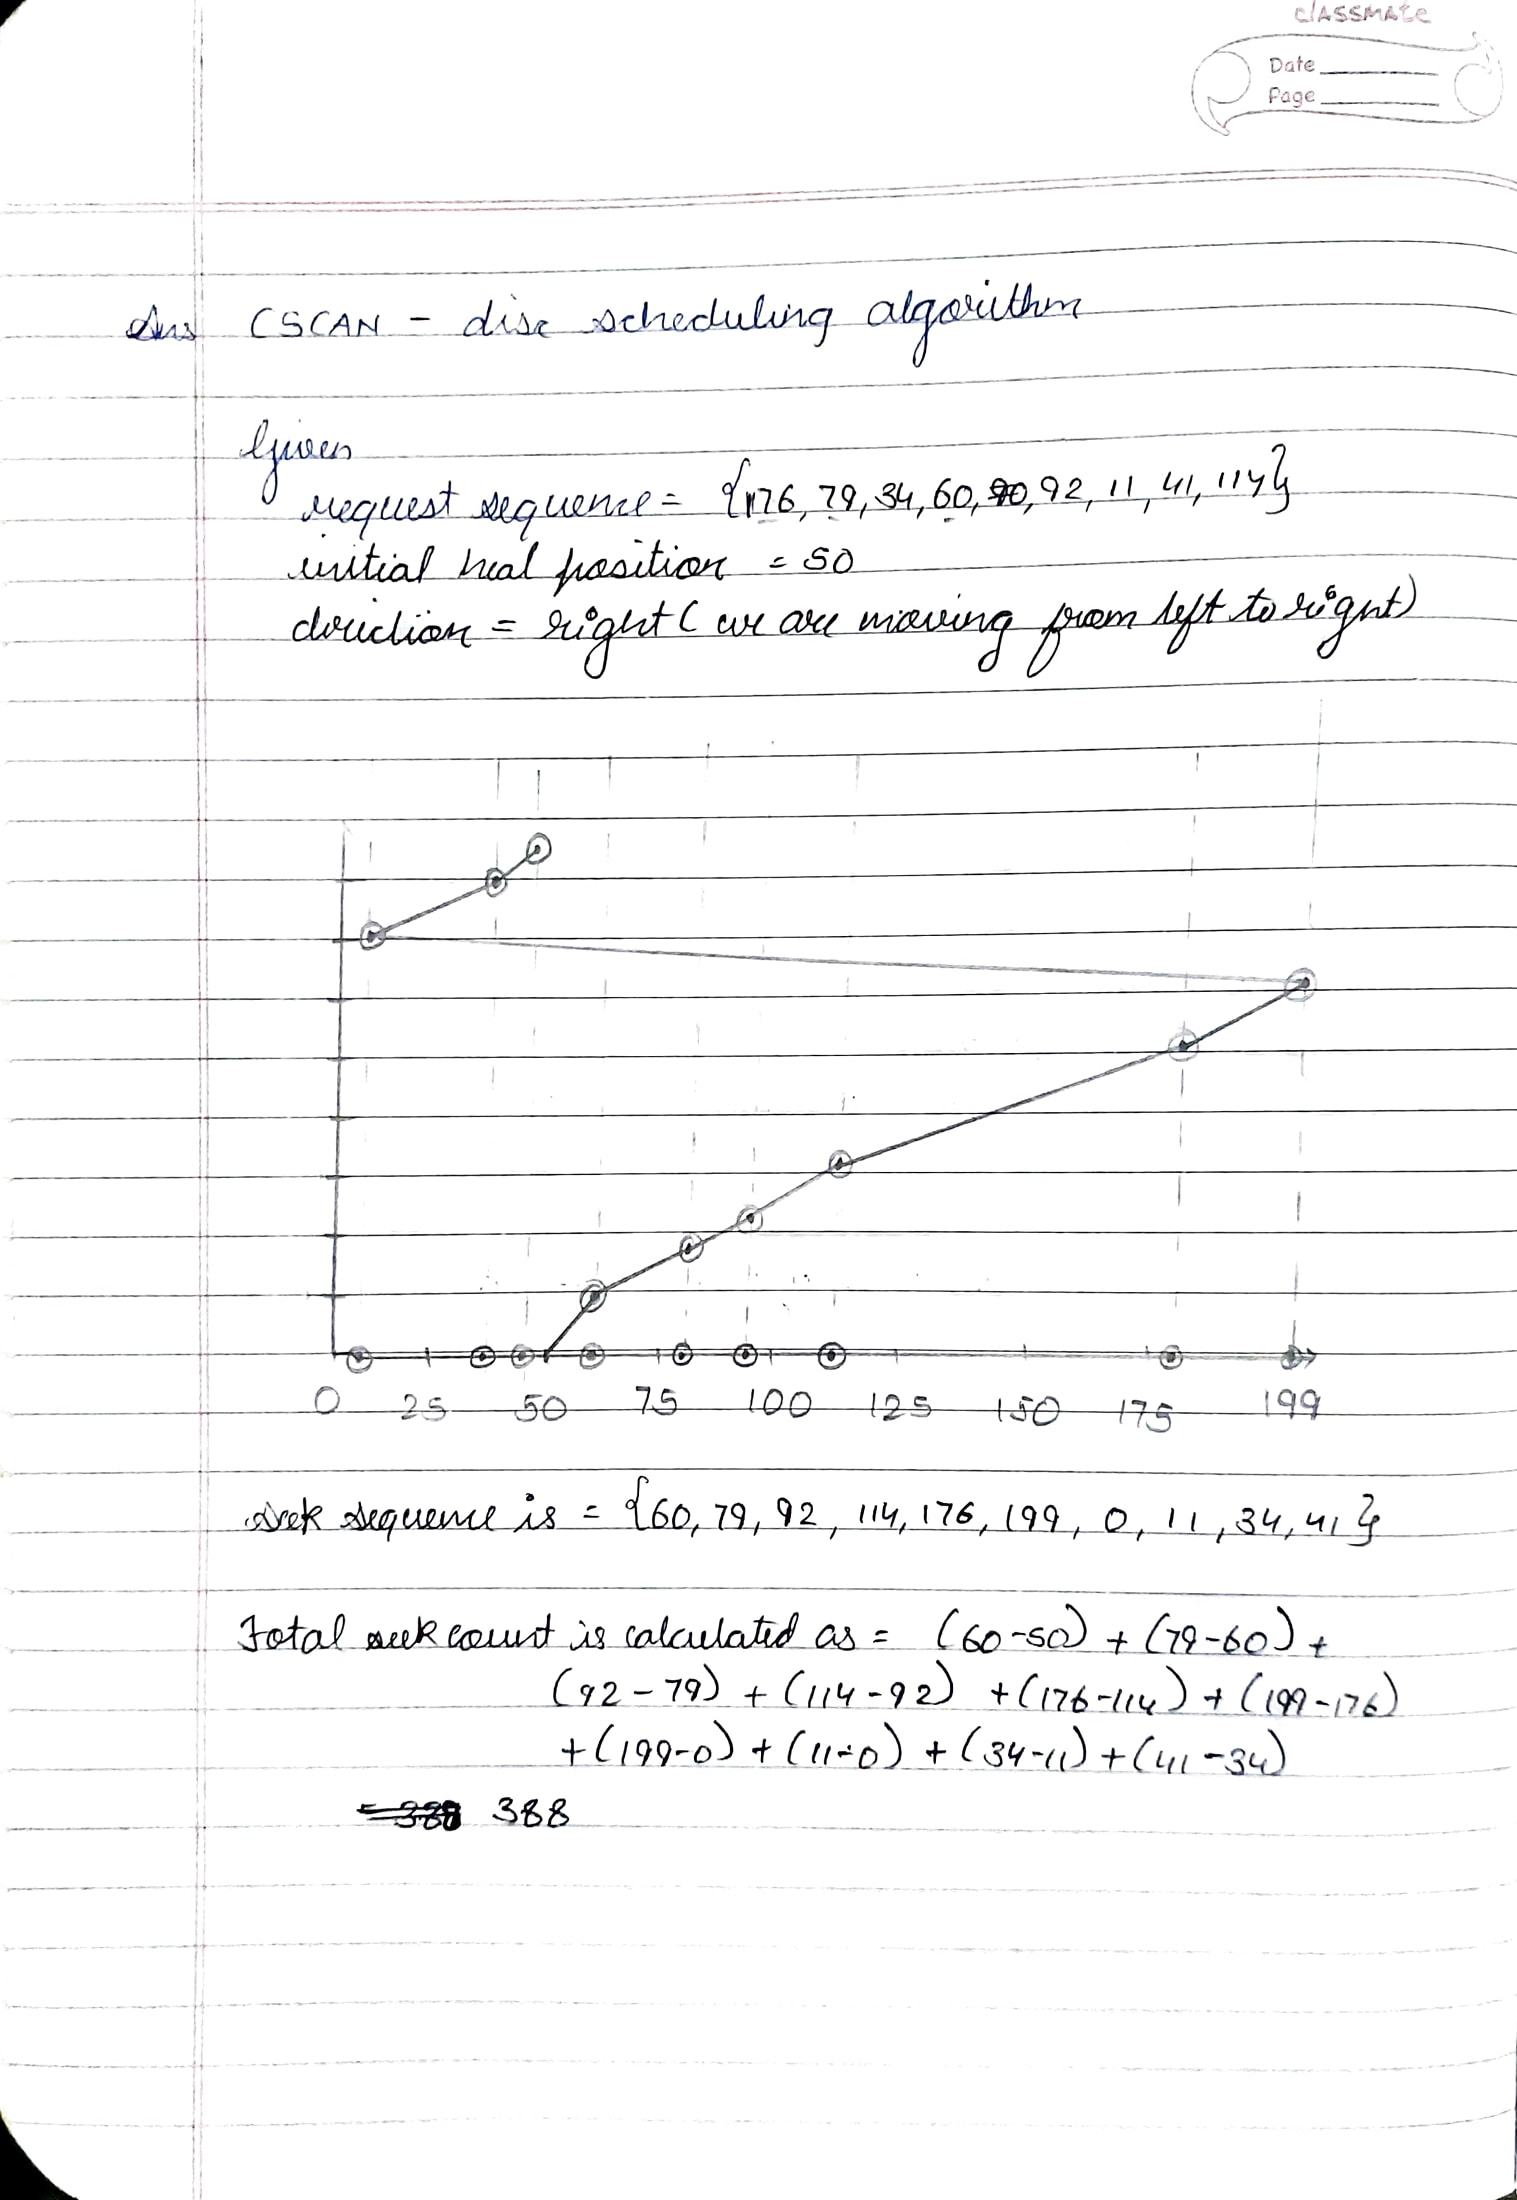 classmate
Date
Page
Ans CSCAN - disc scheduling algorithm
Given
request sequence = {176, 79, 34, 60, 92, 11, 41, 114}
initial heal position = 50
direction = right ( we are moving from left to right)
0 25 50 75 100 125 150 175 199
seek sequence is = {60, 79, 92, 114, 176, 199, 0, 11, 34, 41}
Total seek count is calculated as = (60-50) + (79-60) +
(92-79) + (114-92) + (176-114) + (199-176)
+ (199-0) + (11-0) + (34-11) + (41-34)
388